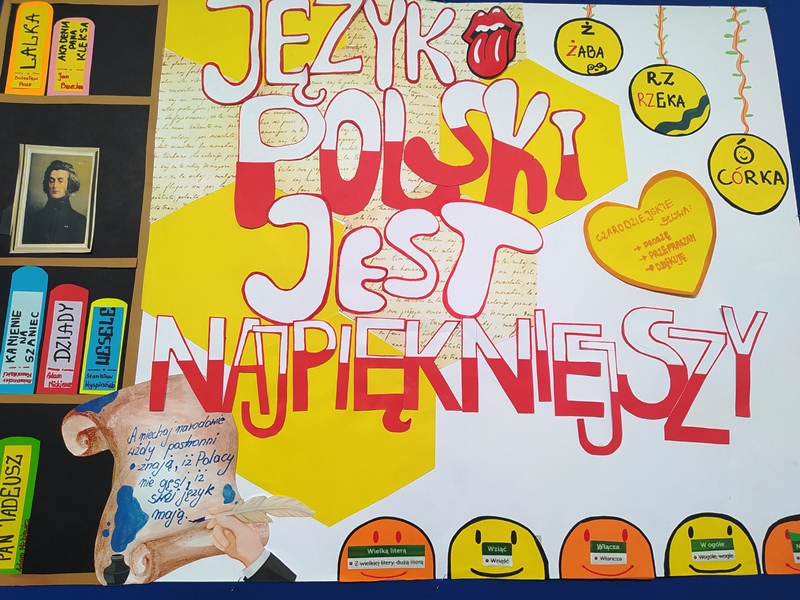 JĘZYK
POLSKI
JEST
NAJPIĘKNIEJSZY
LALKA
Bolesław
Prus
AKADEMIA
PANA
KLEKSA
Jan
Brzechwa
KAMIENIE
NA
SZANIEC
Aleksander
Kamiński
DZIADY
Adam
Mickiewicz
WESELE
Stanisław
Wyspiański
PAN TADEUSZ
Adam Mickiewicz
A niechaj narodowie
wżdy postronni
znają, iż Polacy
nie gęsi, iż
swój język
mają.
Ż
ŻABA
RZ
RZEKA
Ó
CÓRKA
CZARODZIEJSKIE
SŁOWA:
→ PROSZĘ
→ PRZEPRASZAM
→ DZIĘKUJĘ
Wielką literą
Z wielkiej litery, dużą literą
Wziąć
Wziąść
Włącza
Włancza
W ogóle
Wogóle, wogle